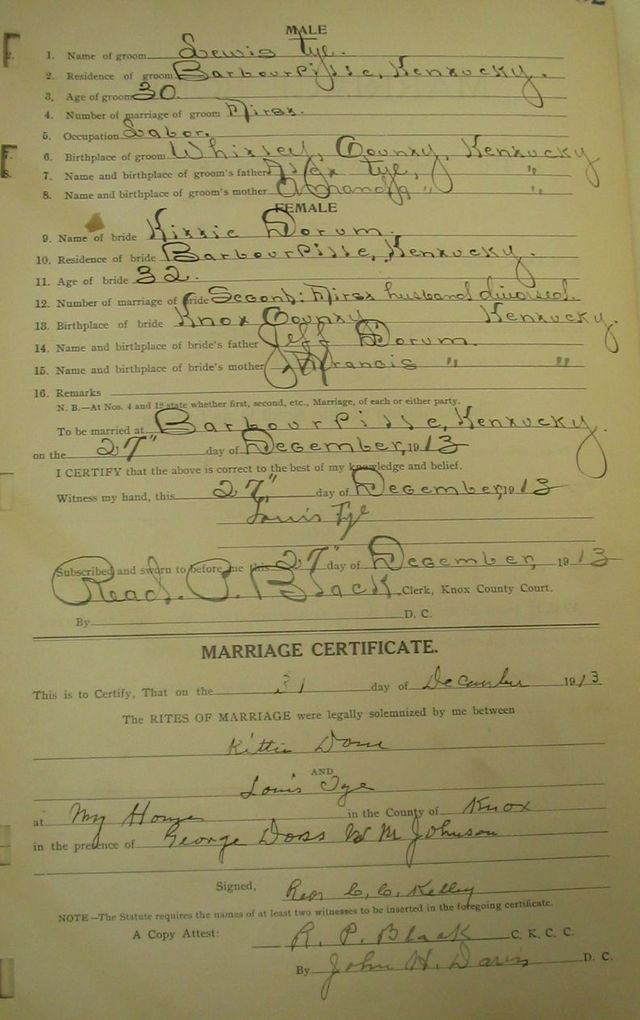 MALE
1. Name of groom Lewis Tye.
2. Residence of groom Barbourville, Kentucky.
3. Age of groom 30
4. Number of marriage of groom First.
5. Occupation Labor.
6. Birthplace of groom Whitley, County, Kentucky
7. Name and birthplace of groom's father Alex Tye, "
8. Name and birthplace of groom's mother " "
FEMALE
9. Name of bride Kittie Dorum.
10. Residence of bride Barbourville, Kentucky.
11. Age of bride 32.
12. Number of marriage of bride Second: First husband divorced.
13. Birthplace of bride Knox County Kentucky.
14. Name and birthplace of bride's father Jeff Dorum.
15. Name and birthplace of bride's mother Francis " "
16. Remarks
N. B.—At Nos. 4 and 12 state whether first, second, etc., Marriage, of each or either party.
To be married at Barbourville, Kentucky.
on the 27" day of December, 1913
I CERTIFY that the above is correct to the best of my knowledge and belief.
Witness my hand, this 27", day of December, 1913
Louis Tye
Subscribed and sworn to before me this 27" day of December, 1913
Read. P. Black Clerk, Knox County Court.
By D. C.
MARRIAGE CERTIFICATE.
This is to Certify, That on the 31 day of December 1913
The RITES OF MARRIAGE were legally solemnized by me between
Kittie
AND
Louis Tye
at My House in the County of Knox
in the presence of George Doss W M Johnson
Signed, Rev C. C. Kelley
NOTE—The Statute requires the names of at least two witnesses to be inserted in the foregoing certificate.
A Copy Attest: R. P. Black C. K. C. C.
By John H. Davis D. C.